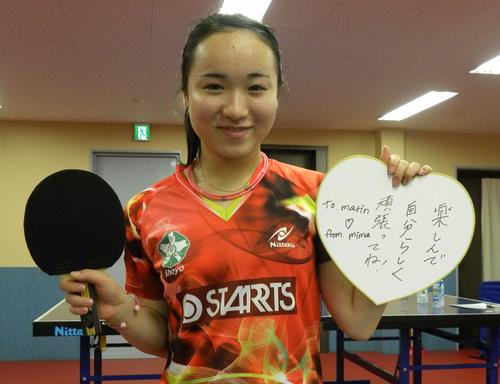 楽しんで
自分らしく
頑張ってね!
to. marin
♡
from. mima
Nittaku
Shoyo
STARTS
Nitta